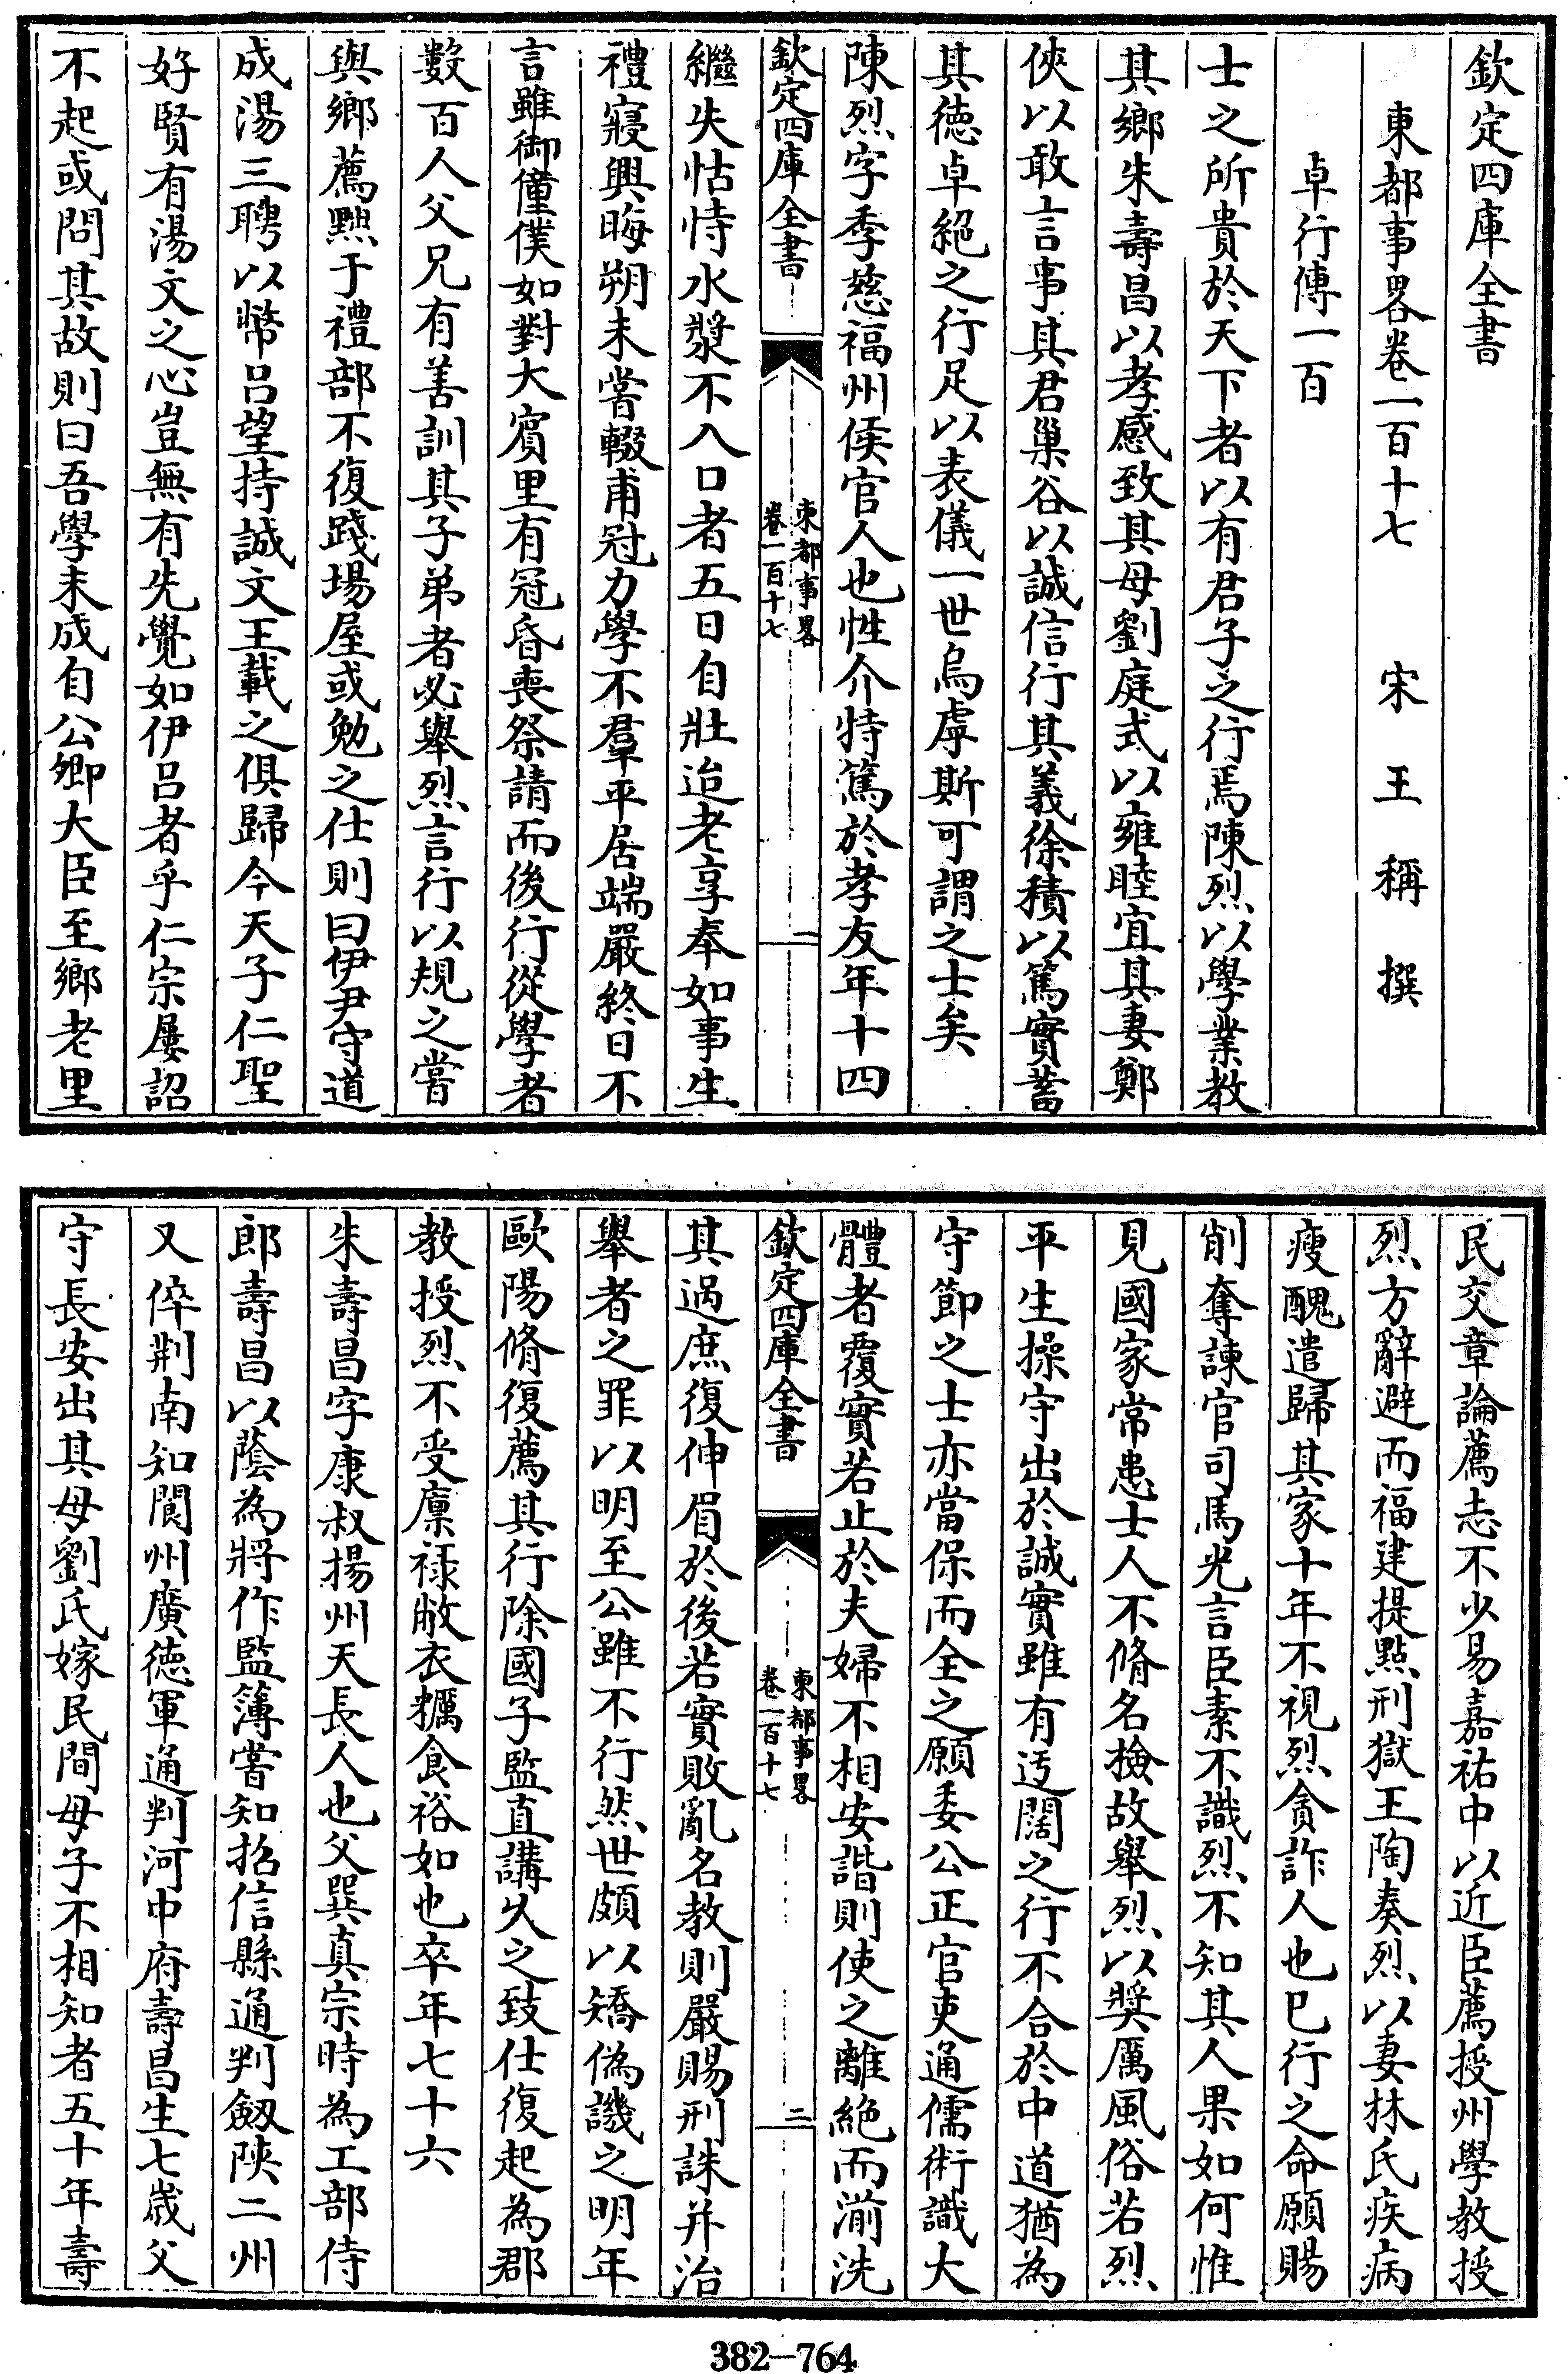 欽定四庫全書
東都事畧卷一百十七　宋　王　稱　撰
卓行傳一百
士之所貴於天下者以有君子之行焉陳烈以學業教
其鄉朱壽昌以孝感致其母劉庭式以雍睦宜其妻鄭
俠以敢言事其君巢谷以誠信行其義徐積以篤實蓄
其徳卓絕之行足以表儀一世烏虖斯可謂之士矣
陳烈字季慈福州侯官人也性介特篤於孝友年十四
欽定四庫全書
東都事畧
卷一百十七
一
繼失怙恃水漿不入口者五日自壯迨老享奉如事生
禮寢興晦朔未嘗輟甫冠力學不羣平居端嚴終日不
言雖御僮僕如對大賓里有冠昏喪祭請而後行從學者
數百人父兄有善訓其子弟者必舉烈言行以規之嘗
與鄉薦黜于禮部不復踐場屋或勉之仕則曰伊尹守道
成湯三聘以幣呂望持誠文王載之俱歸今天子仁聖
好賢有湯文之心豈無有先覺如伊呂者乎仁宗屢詔
不起或問其故則曰吾學未成自公卿大臣至鄉老里
民交章論薦志不少易嘉祐中以近臣薦授州學教授
烈方辭避而福建提點刑獄王陶奏烈以妻林氏疾病
瘦醜遣歸其家十年不視烈貪詐人也已行之命願賜
削奪諫官司馬光言臣素不識烈不知其人果如何惟
見國家常患士人不脩名檢故舉烈以奨厲風俗若烈
平生操守出於誠實雖有迂闊之行不合於中道猶為
守節之士亦當保而全之願委公正官吏通儒術識大
體者覆實若止於夫婦不相安諧則使之離絕而湔洗
欽定四庫全書
東都事畧
卷一百十七
二
其過庶復伸眉於後若實敗亂名教則嚴賜刑誅并治
舉者之罪以明至公雖不行然世頗以矯偽譏之明年
歐陽脩復薦其行除國子監直講久之致仕復起為郡
教授烈不受廩祿敝衣糲食裕如也卒年七十六
朱壽昌字康叔揚州天長人也父巽真宗時為工部侍
郎壽昌以蔭為將作監簿嘗知招信縣通判劔陜二州
又倅荆南知閬州廣徳軍通判河中府壽昌生七歲父
守長安出其母劉氏嫁民間母子不相知者五十年壽
382-764